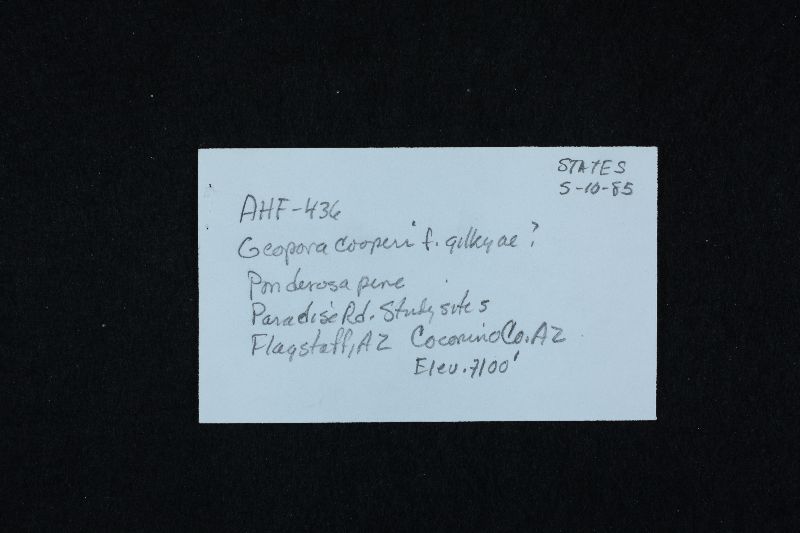 STATES
5-10-85
AHF-436
Geopora cooperi f. gilkeyae?
Ponderosa pine
Paradise Rd. Study sites
Flagstaff, AZ Coconino Co. AZ
Elev. 7100'